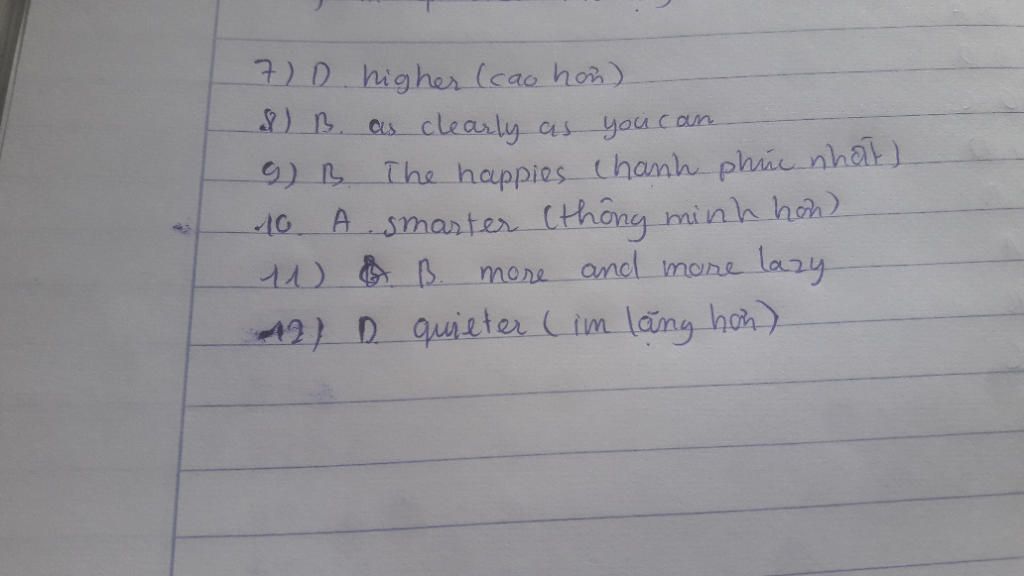 7) D. higher (cao hơn)
8) B. as clearly as you can
9) B. The happies (hanh phúc nhất)
10. A. smarter (thông minh hơn)
11) B. more and more lazy
12) D. quieter (im lặng hơn)